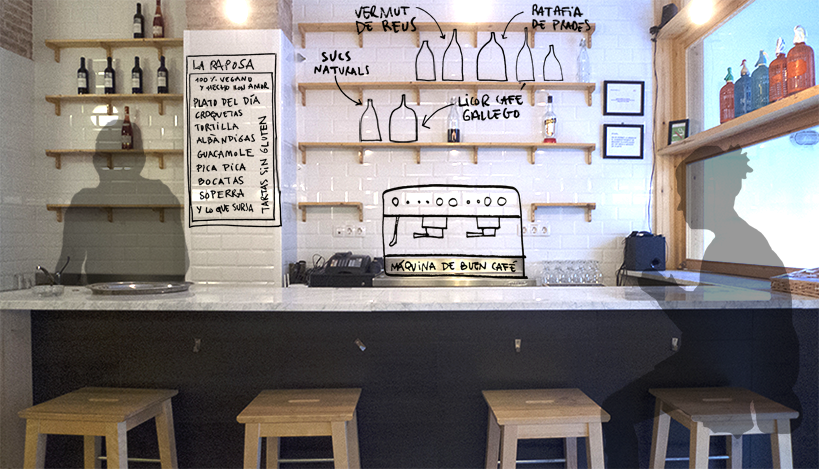 VERMUT
DE REUS
RATAFIA
DE PRADES
SUCS
NATURALS
LICOR CAFE
GALLEGO
LA RAPOSA
100% VEGANO
Y HECHO KON AMOR
PLATO DEL DÍA
CROQUETAS
TORTILLA
ALBANDIGAS
GUACAMOLE
PICA PICA
BOCATAS
SOPERRA
Y LO QUE SURJA
TARTAS SIN GLUTEN
MÁQUINA DE BUEN CAFÉ